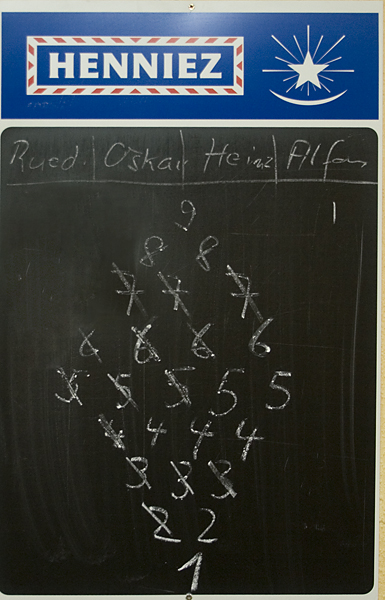 HENNIEZ
Ruedi Oskar Heinz Alfons
1
9
8 8
7 7 7
6 6 6 6
5 5 5 5 5
4 4 4 4
3 3 3
2 2
1